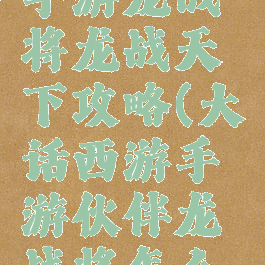 手游龙战
将龙战天
下攻略(大
话西游手
游伙伴龙
战将怎么